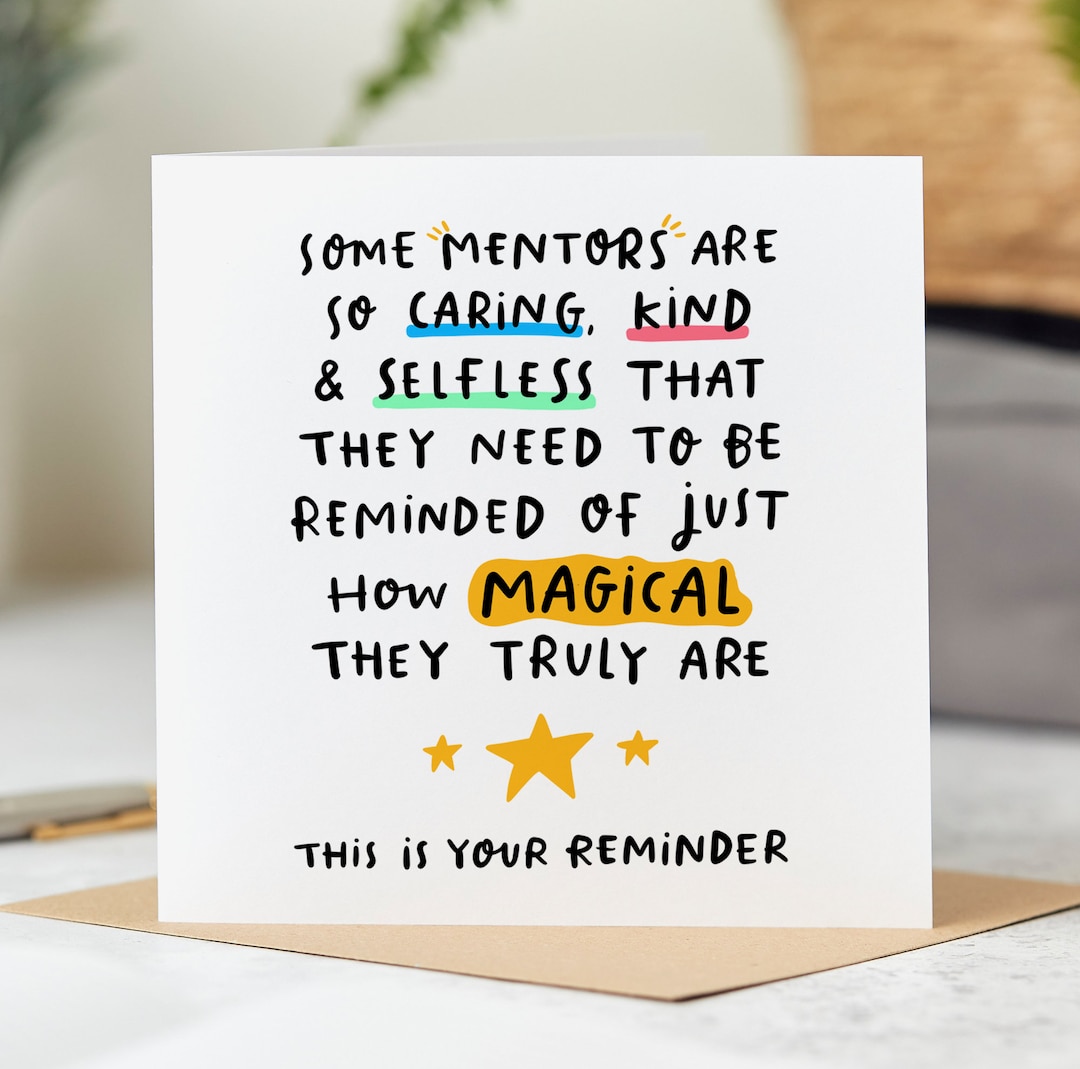 SOME MENTORS ARE
SO CARING, KIND
& SELFLESS THAT
THEY NEED TO BE
REMINDED OF JUST
HOW MAGICAL
THEY TRULY ARE
THIS IS YOUR REMINDER